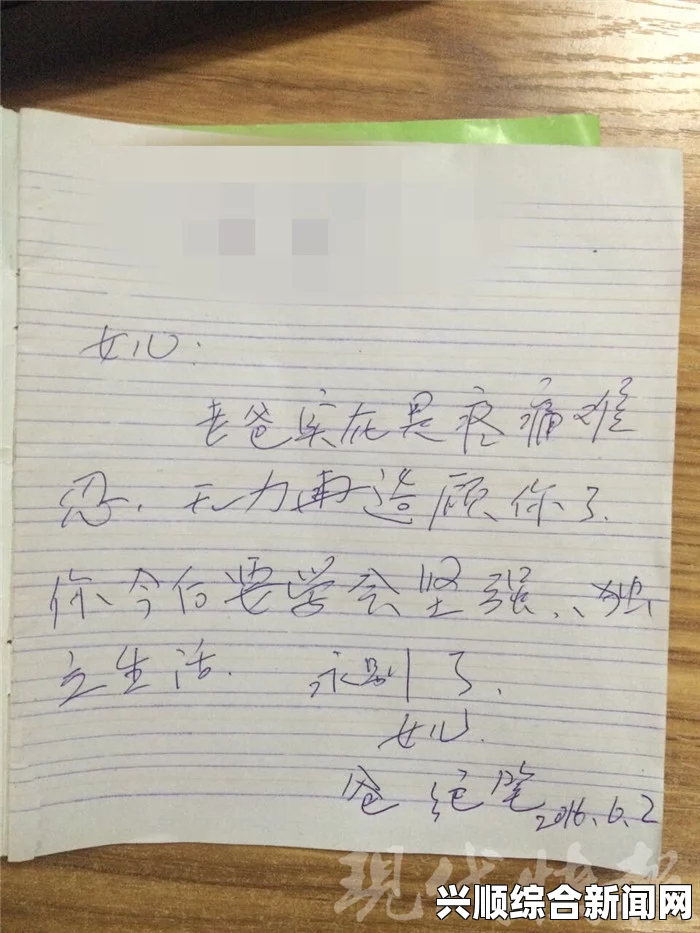 女儿：
老爸实在是疼痛难
忍．无力再造顾你了．
你今后要学会坚强、独
立生活．永别了．
女儿
爸 绝笔 2016.6.2
现代快报
兴顺综合新闻网